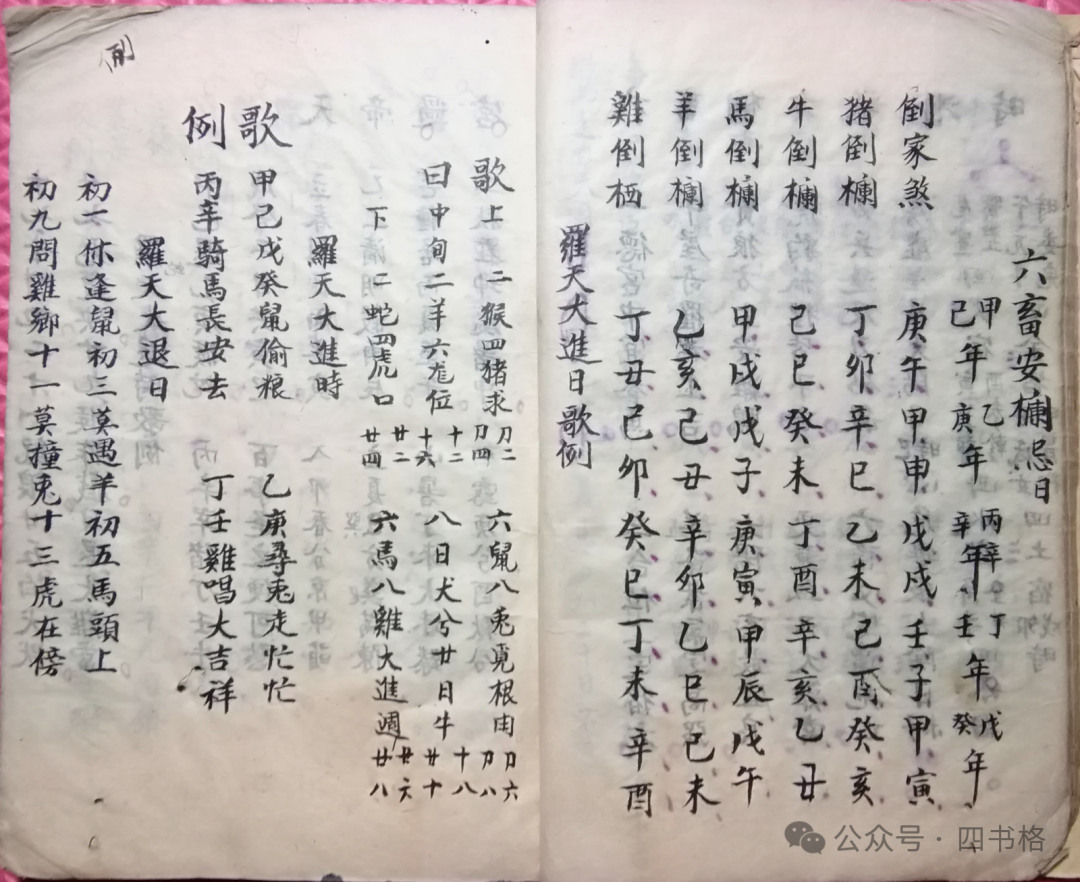 六畜安欄忌日
甲己年 乙庚年 丙辛年 丁壬年 戊癸年
倒家煞 庚午甲申戊戌壬子甲寅
猪倒欄 丁卯辛巳乙未己酉癸亥
牛倒欄 己巳癸未丁酉辛亥乙丑
馬倒欄 甲戌戊子庚寅甲辰戊午
羊倒欄 乙亥己丑辛卯乙巳己未
雞倒栖 丁丑己卯癸巳丁未辛酉
羅天大進日歌例
歌上 二猴四猪求 刀二 刀四 六鼠八兎覓根由 刀六 刀八
曰中旬二羊六龙位 十二 十六 八日犬兮廿日牛 十八 廿十
下 二蛇四虎口 廿二 廿四 六馬八雞大進週 廿六 廿八
羅天大進時
歌例
甲己戊癸鼠偷粮 乙庚尋兎走忙忙
丙辛騎馬長安去 丁壬雞唱大吉祥
羅天大退日
初一休逢鼠初三莫遇羊初五馬頭上
初九問雞鄉十一莫撞兎十三虎在傍
公众号·四书格